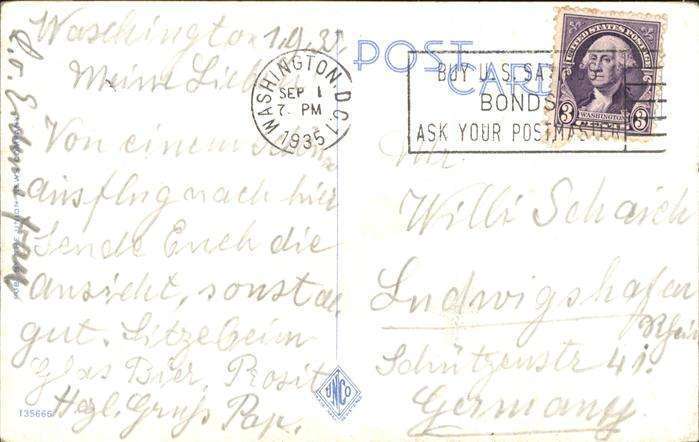 Waschington 1.9.35
Meine Lieben
Von einem
ausflug nach hier
sende Euch die
ansicht, sonst
gut. Sitze beim
Glas Bier, Prosit
Hezl. Gruß Pap.
135666
POST CARD
WASHINGTON, D.C. 1
SEP 1
7 PM
1935
BUY U.S. SAVINGS
BONDS
ASK YOUR POSTMASTER
UNITED STATES POSTAGE
3 WASHINGTON 3
CENTS
Willi Schaich
Ludwigshafen
Rhein
Schützenstr 41.
Germany